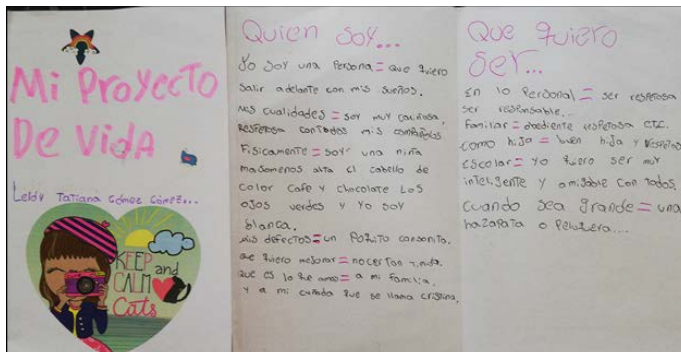 Mi Proyecto
De Vida
Leidy Tatiana Gómez Gómez...
KEEP
and
CALM
Cats
Quien soy...
Yo soy una Persona = que quiero
salir adelante con mis sueños.
Mis cualidades = soy muy cariñosa,
respetosa con todos mis compañeros.
Fisicamente = soy una niña
masomenos alta el cabello de
color cafe y chocolate Los
ojos verdes y Yo soy
blanca.
Mis defectos = un Poquito cansonita.
que quiero mejorar = no ser tan
que es lo que amo = a mi familia.
y a mi cuñada que se llama cristina.
Que quiero
ser...
En lo Personal = ser respetosa
ser responsable...
Familiar = obediente respetosa etc.
como hija = buen hija y
Escolar = Yo quiero ser muy
inteligente y amigable con todos.
cuando sea grande = una
o Peluquera....